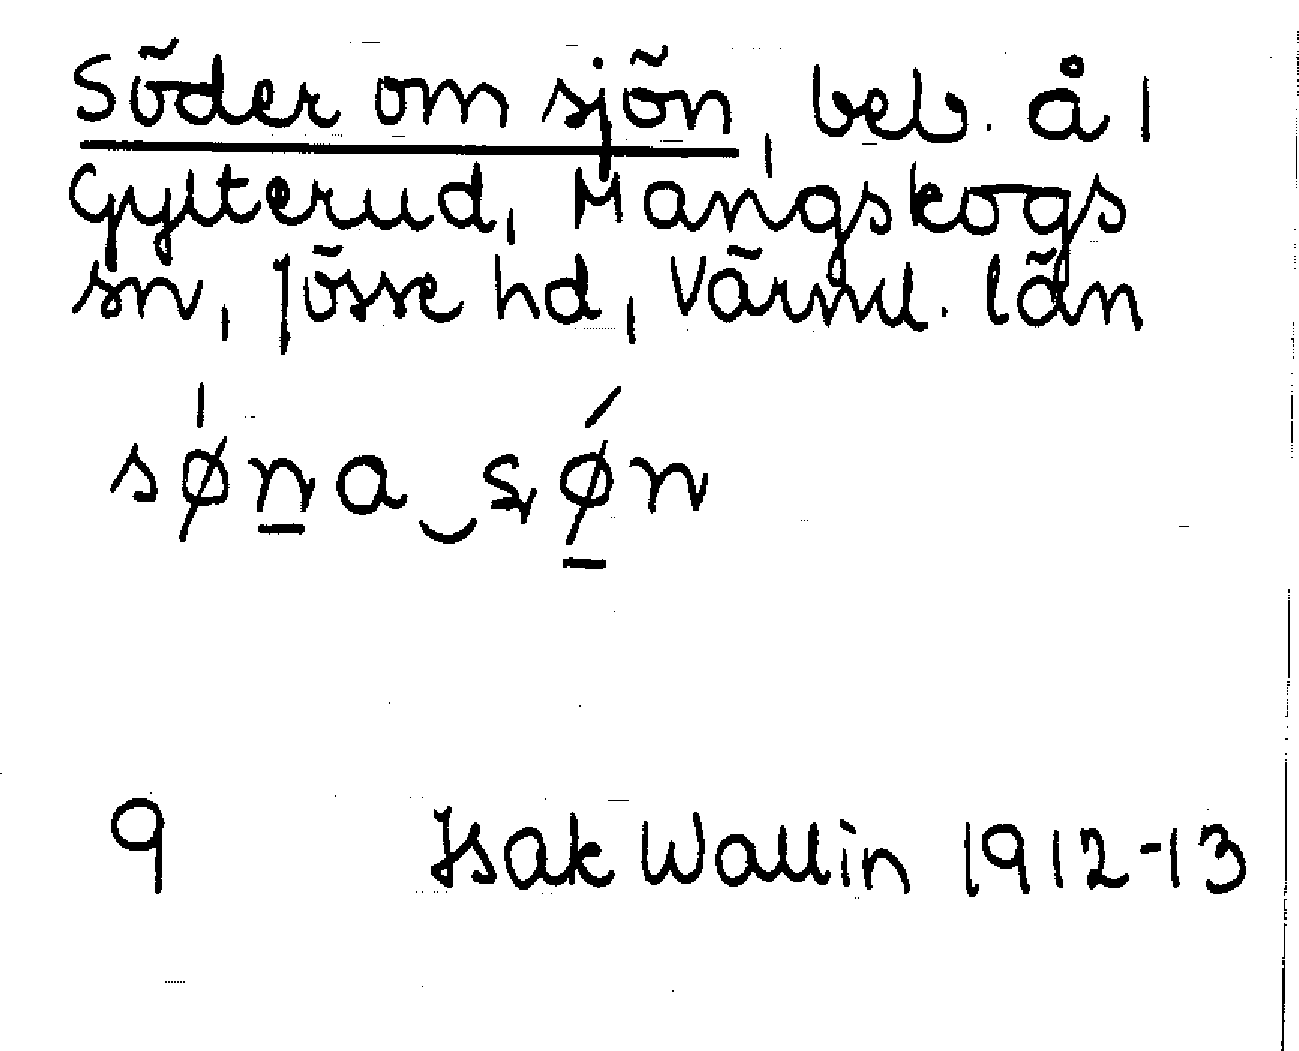 Söder om sjön, beb. å 1
Gylterud, Mangskogs
sn, Jösse hd, Värml. län
sǿn̲a‿sǿ̲n
9 Isak Wallin 1912-13